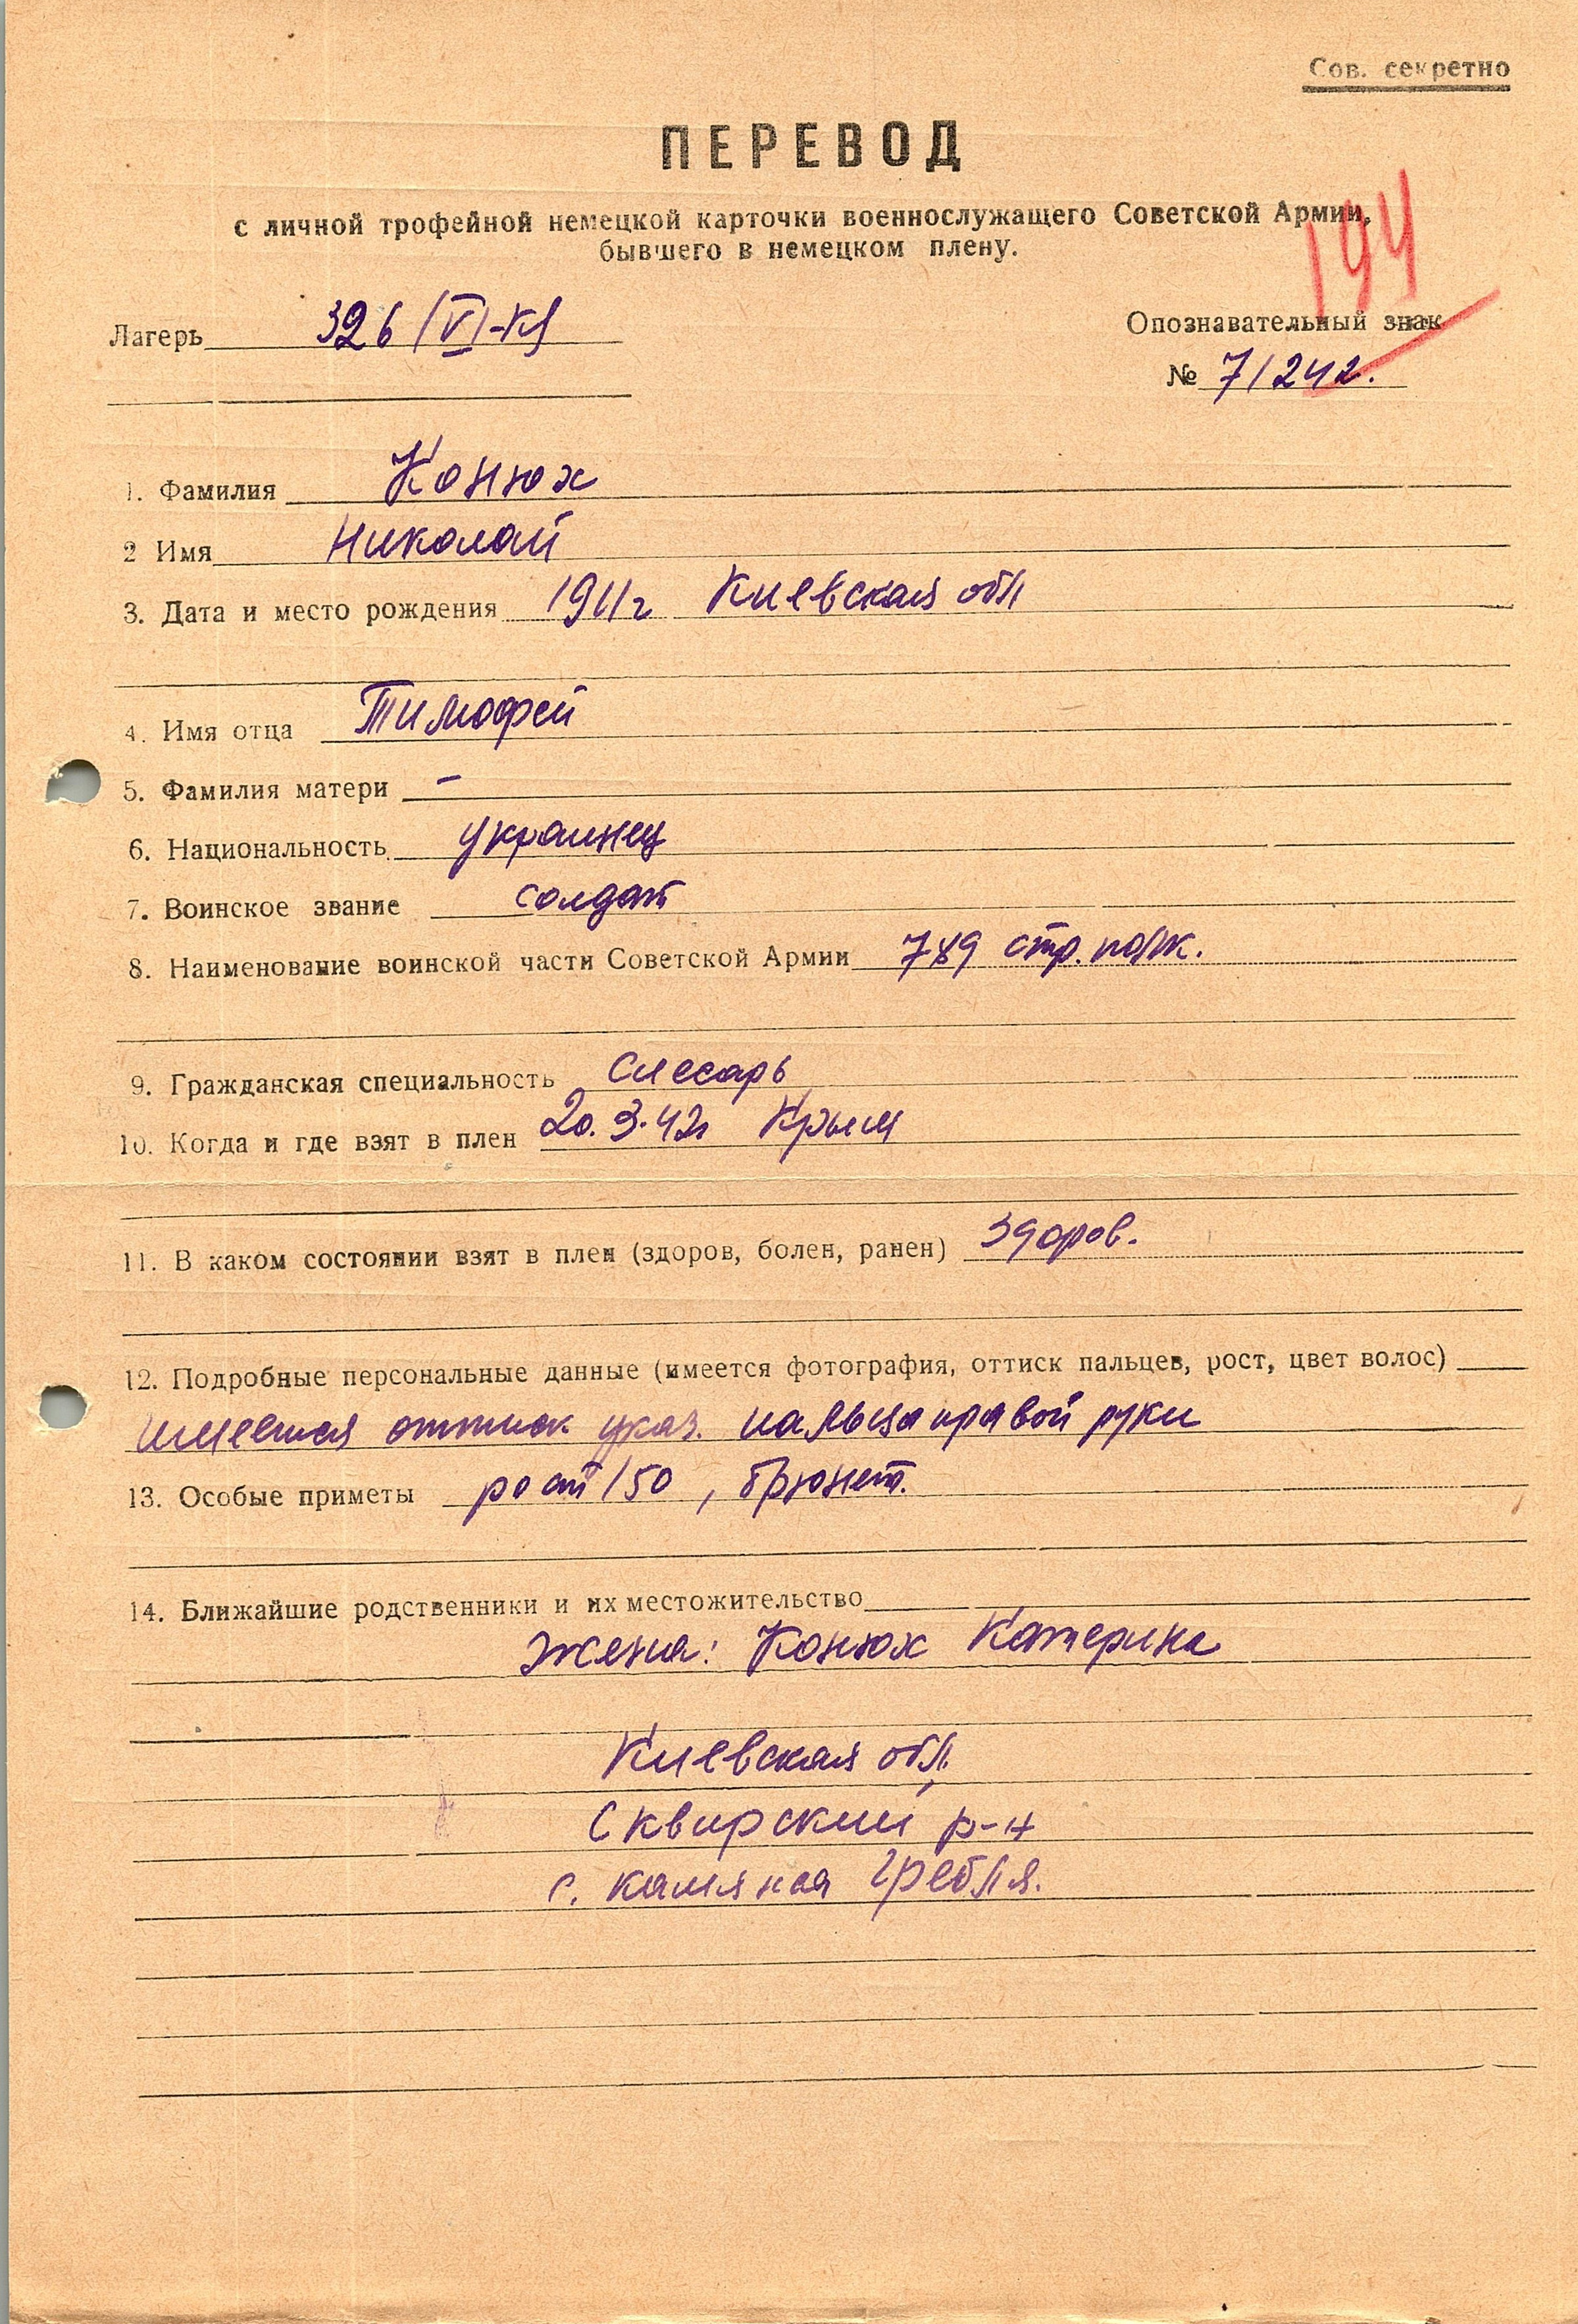 Сов. секретно
ПЕРЕВОД
с личной трофейной немецкой карточки военнослужащего Советской Армии,
бывшего в немецком плену.
194
Лагерь 326 (VI-К)
Опознавательный знак
№ 71242.
1. Фамилия Конюх
2 Имя Николай
3. Дата и место рождения 1911г Киевская обл
4. Имя отца Тимофей
5. Фамилия матери –
6. Национальность украинец
7. Воинское звание солдат
8. Наименование воинской части Советской Армии 789 стр. полк.
9. Гражданская специальность слесарь
10. Когда и где взят в плен 20.3.42г Крым
11. В каком состоянии взят в плен (здоров, болен, ранен) здоров.
12. Подробные персональные данные (имеется фотография, оттиск пальцев, рост, цвет волос)
имеется оттиск указ. пальца правой руки
13. Особые приметы рост 150, брюнет.
14. Ближайшие родственники и их местожительство
жена: Конюх Катерина
Киевская обл.
Сквирский р-н
с. камяная гребля.